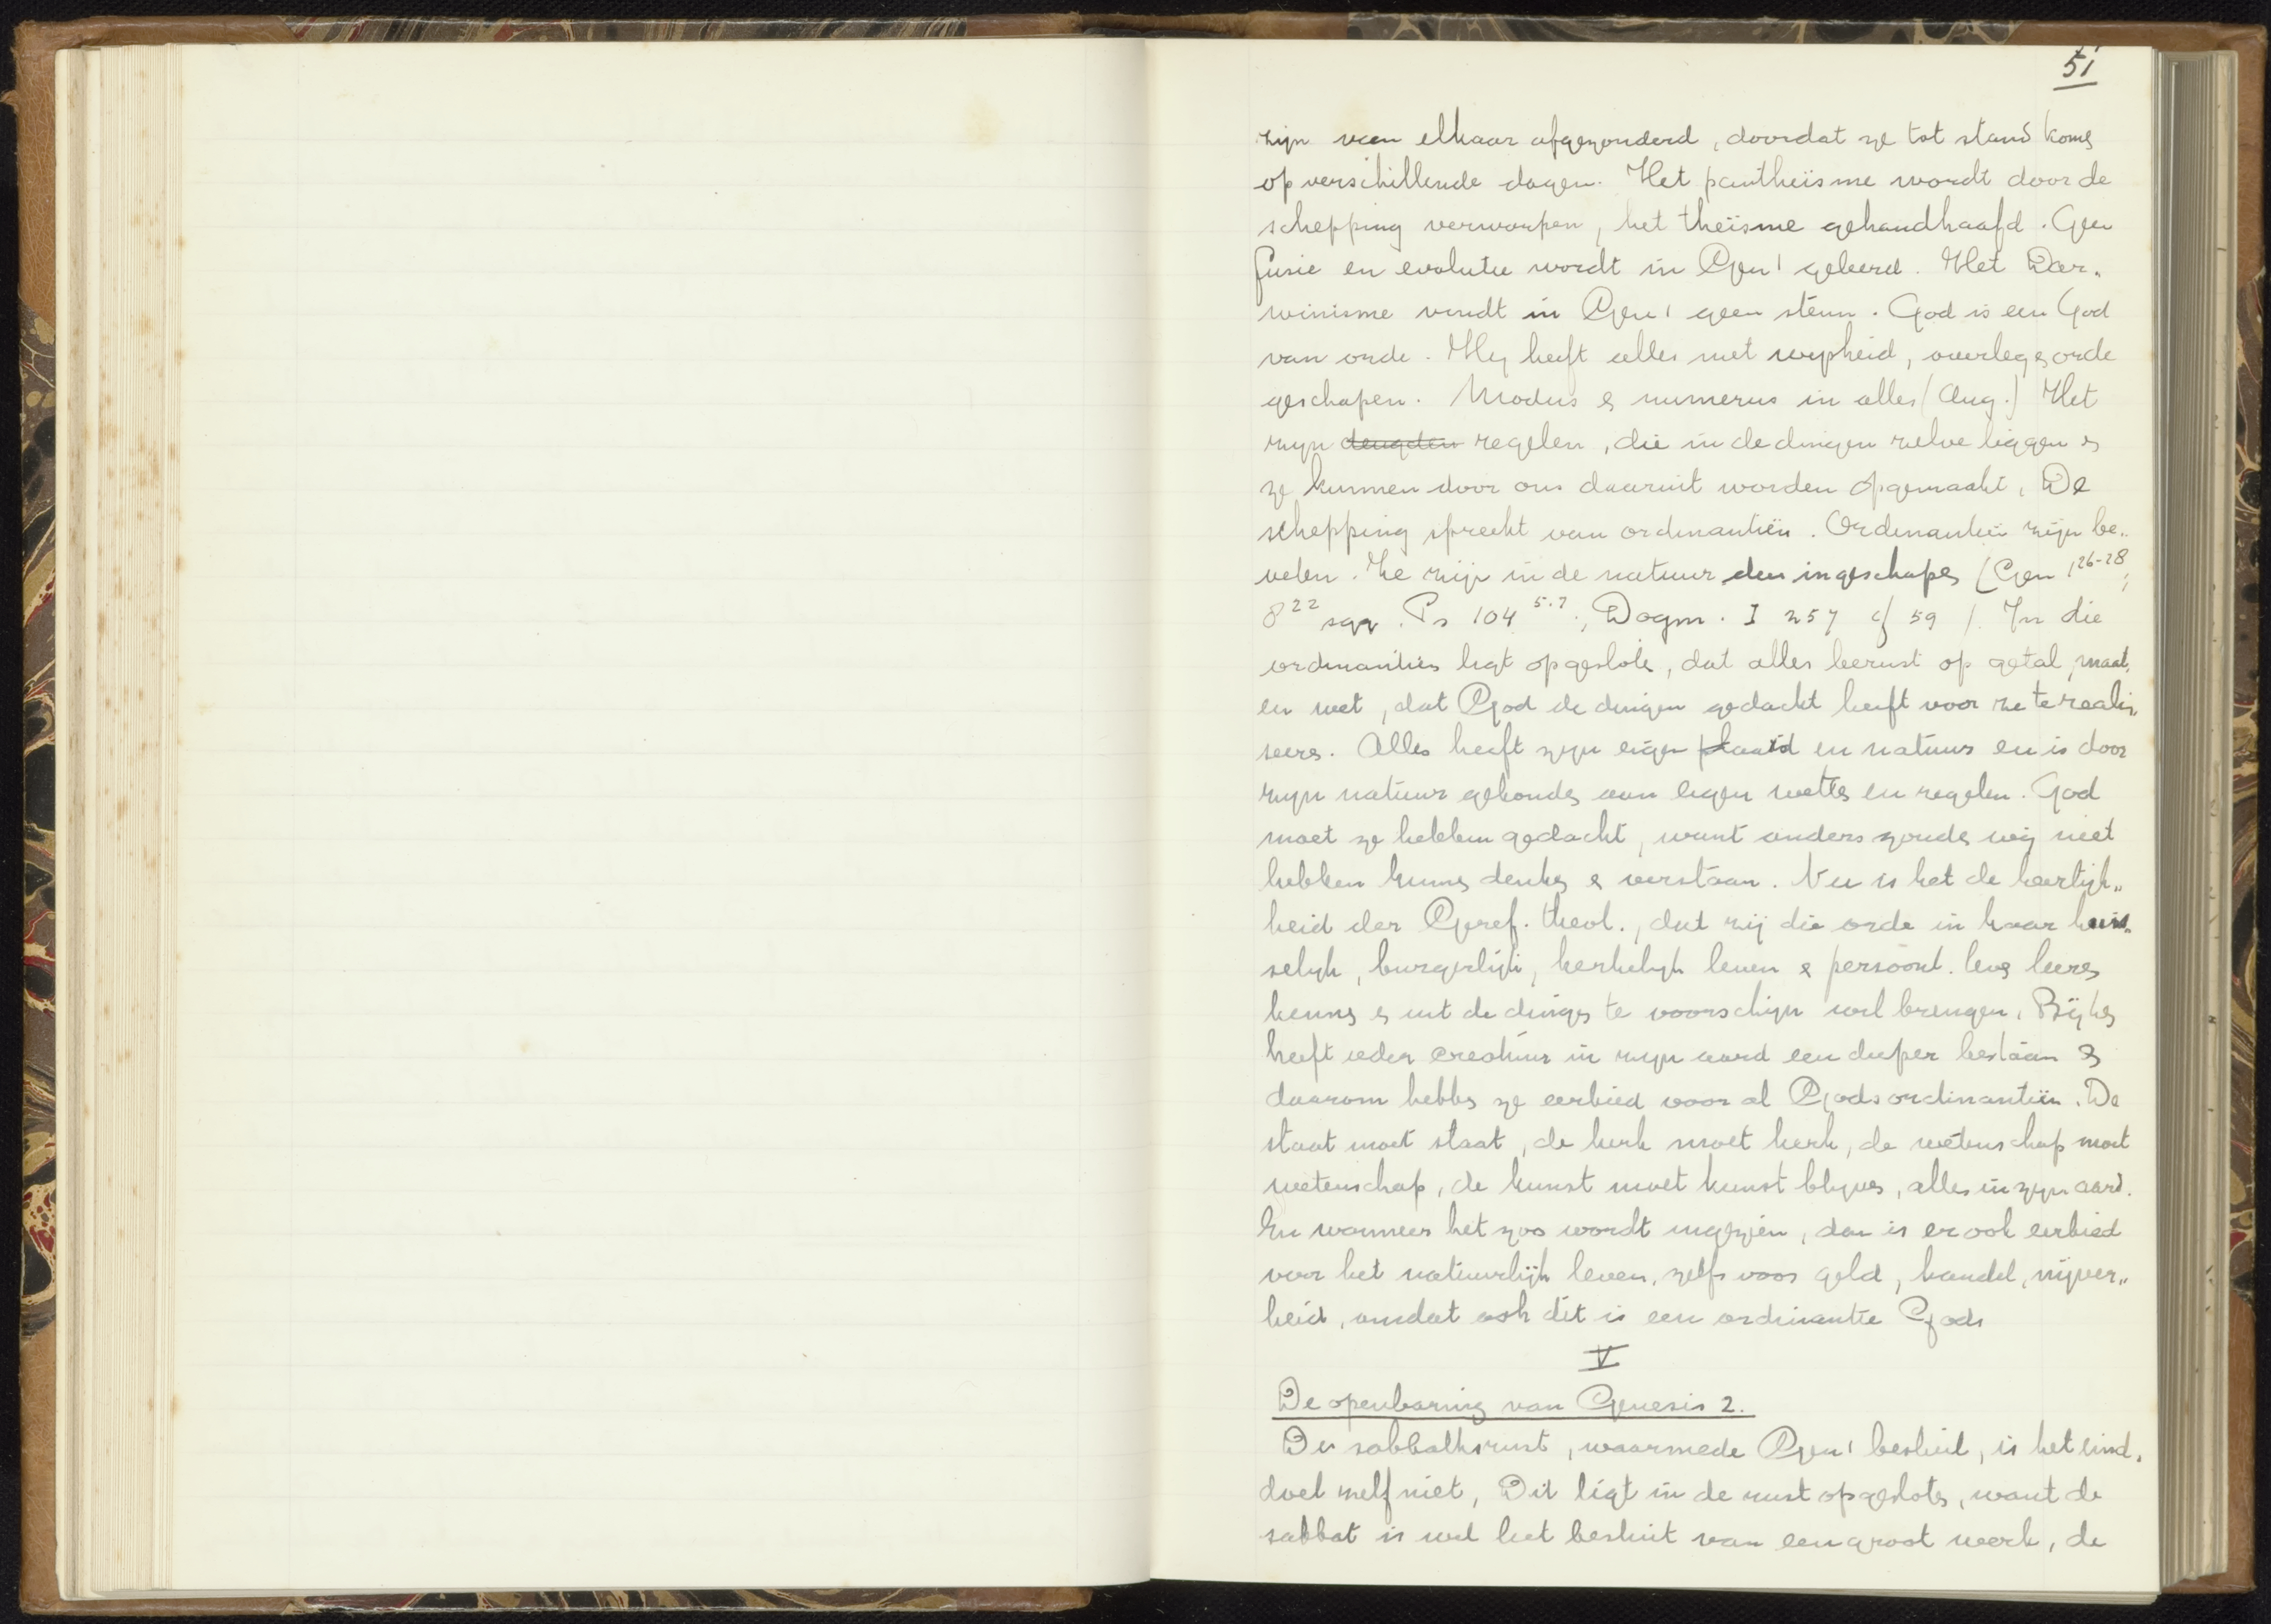 51
zijn van elkaar afgezonderd, doordat ze tot stand komen
op verschillende dagen. Het pantheïsme wordt door de
schepping verworpen, het theïsme gehandhaafd. Geen
fusie en evolutie wordt in Gen 1 geleerd. Het Dar„
winisme vindt in Gen 1 geen steun. God is een God
van orde. Hij heeft alles met wijsheid, overleg en orde
geschapen. Modus en numerus in alles (Aug.) Het
zijn deugden regelen, die in de dingen zelve liggen en
ze kunnen door ons daaruit worden opgemaakt. De
schepping spreekt van ordinantiën. Ordinantiën zijn be„
velen. Ze zijn in de natuur den ingeschapen (Gen 1 26-28;
8 22 sqq. Ps 104 5.7., Dogm. I 257 cf 59). In die
ordinantiën ligt opgesloten, dat alles berust op getal, maat,
en wet, dat God de dingen gedacht heeft voor ze te reali„
seeren. Alles heeft zijn eigen aard en natuur en is door
zijn natuur gebonden aan eigen wetten en regelen. God
moet ze hebben gedacht, want anders zouden wij niet
hebben kunnen denken en verstaan. Nu is het de heerlijk„
heid der Geref. theol., dat zij die orde in haar huis„
selijk, burgerlijk, kerkelijk leven en persoonl. leven leeren
kennen en uit de dingen te voorschijn wil brengen.
heeft ieder creatuur in zijn aard een dieper bestaan en
daarom hebben ze eerbied voor al Gods ordinantiën. De
staat moet staat, de kerk moet kerk, de wetenschap moet
wetenschap, de kunst moet kunst blijven, alles in zijn aard.
En wanneer het zoo wordt ingezien, dan is er ook eerbied
voor het natuurlijk leven, zelfs voor geld, handel, nijver„
heid, omdat ook dit is een ordinantie Gods
V
De openbaring van Genesis 2.
De sabbathsrust, waarmede Gen 1 besluit, is het eind„
doel zelf niet. Dit ligt in de rust opgesloten, want de
sabbat is wel het besluit van een groot werk, de